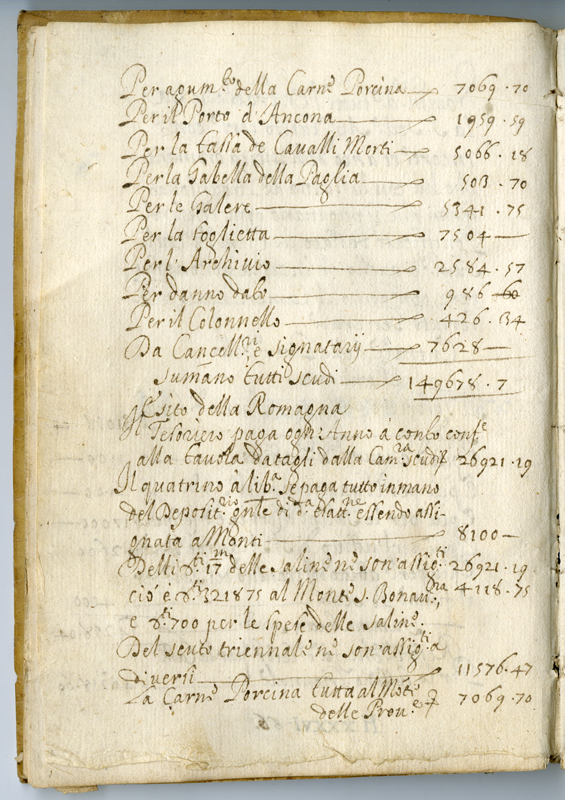 Per agum.to della Carne Porcina 7069.70
Per il Porto d'Ancona 1959.59
Per la tassa de Cavalli Morti 5066.18
Per la Gabella della Paglia 503.70
Per le Galere 5341.75
Per la foglietta 7504
Per l'Archivio 2584.57
Per danno dato 986.60
Per il Colonnello 426.34
Da Cancell.ri e signatarij 7628
sumano tutti scudi 149678.7
Esito della Romagna
Il Tesoriero paga ogni Anno a conto conf.e
alla tavola datagli dalla Cam.ra scudi 26921.19
Il quatrino a lib.a se paga tutto in mano
del Deposit.rio gnle di d.ta essendo assi-
gnata a Monti 8100
Delli 17 delle saline ne son assig.ti 26921.19
cio è 321875 al Monte s. Bonau.ra 4118.75
e 700 per le spese delle saline.
Del scuto triennale ne son assig.ti a
diversi 11576.47
La Carne Porcina tutta al Mote 7069.70
delle Prou.e